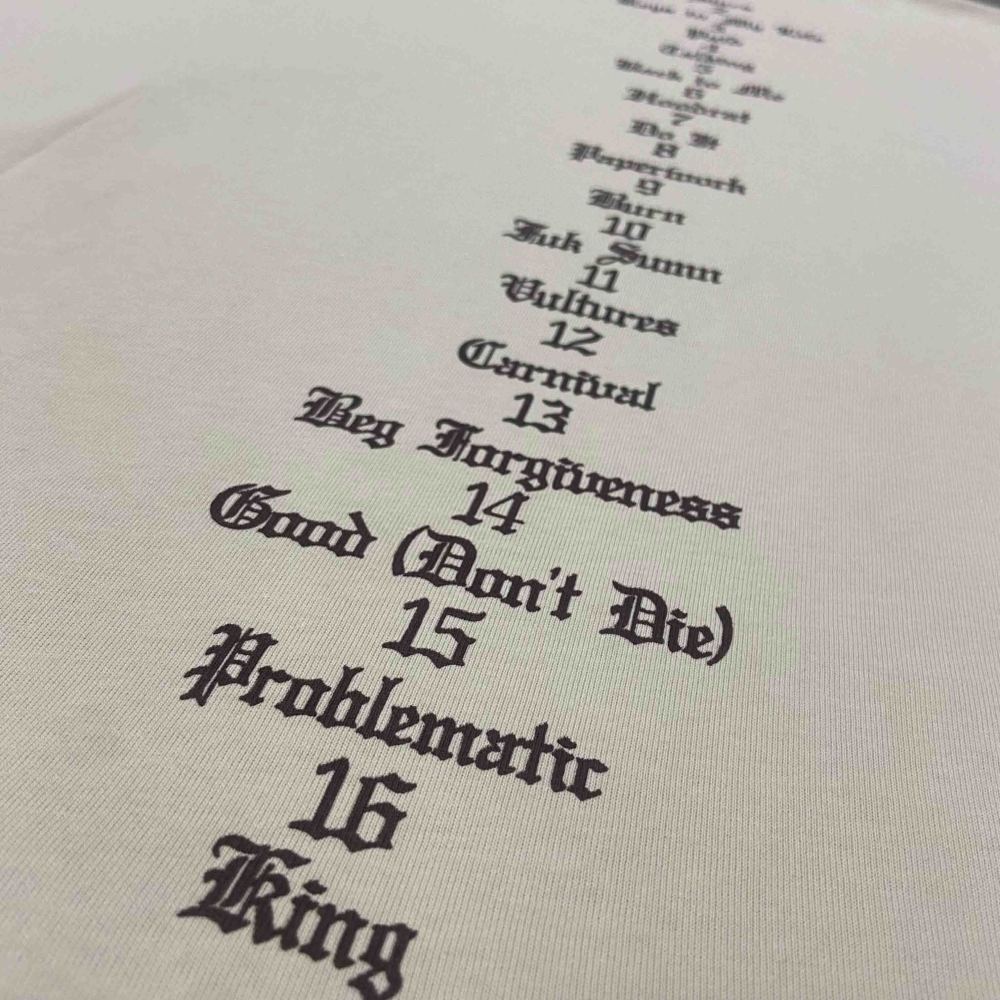 Back to Me
6
Hoodrat
7
Do It
8
Paperwork
9
Burn
10
Fuk Sumn
11
Vultures
12
Carnival
13
Beg Forgiveness
14
Good (Don't Die)
15
Problematic
16
King